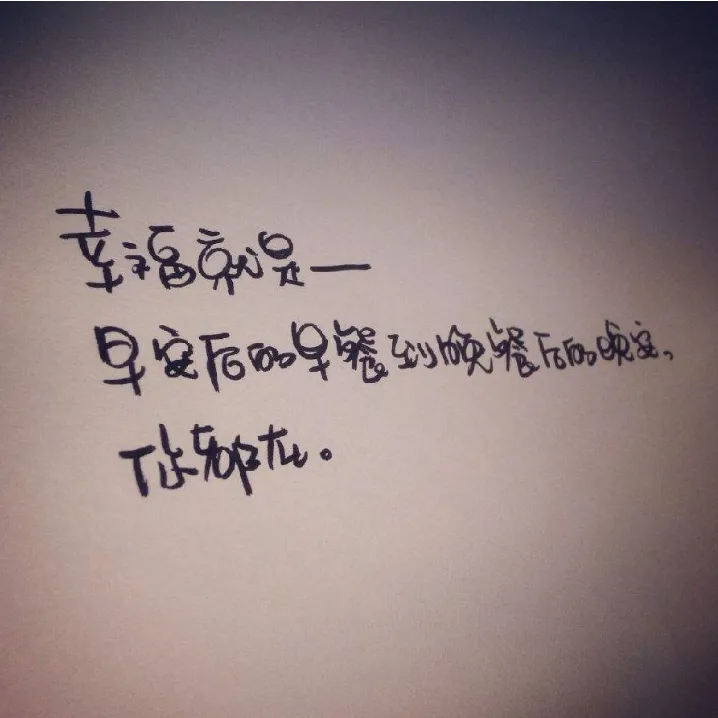 幸福就是—
早安后的早餐到晚餐后的晚安，
你都在。